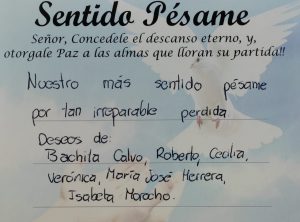 Sentido Pésame
Señor, Concedele el descanso eterno, y,
otorgale Paz a las almas que lloran su partida!!
Nuestro más sentido pésame
por tan irreparable perdida
Deseos de:
Bachita Calvo, Roberto, Cecilia,
Verónica, María José Herrera,
Isabela Morocho.